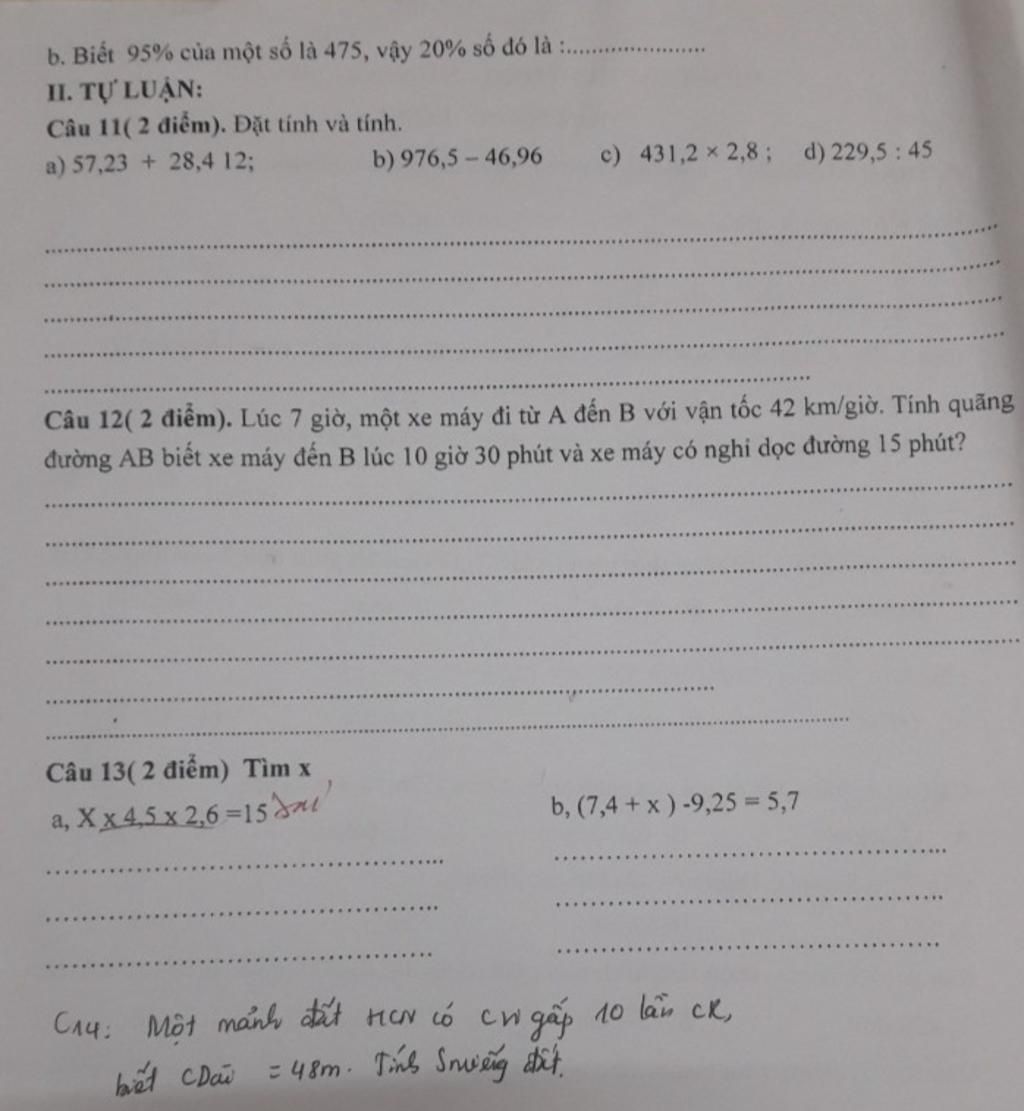 b. Biết 95% của một số là 475, vậy 20% số đó là :......................
II. TỰ LUẬN:
Câu 11( 2 điểm). Đặt tính và tính.
a) 57,23 + 28,4 12; b) 976,5 – 46,96 c) 431,2 × 2,8 ; d) 229,5 : 45
Câu 12( 2 điểm). Lúc 7 giờ, một xe máy đi từ A đến B với vận tốc 42 km/giờ. Tính quãng
đường AB biết xe máy đến B lúc 10 giờ 30 phút và xe máy có nghỉ dọc đường 15 phút?
Câu 13( 2 điểm) Tìm x
a, X x 4,5 x 2,6 =15 Sai b, (7,4 + x ) -9,25 = 5,7
C14: Một mảnh đất HCN có CV gấp 10 lần CR,
biết CDài = 48m. Tính Smiếng đất.